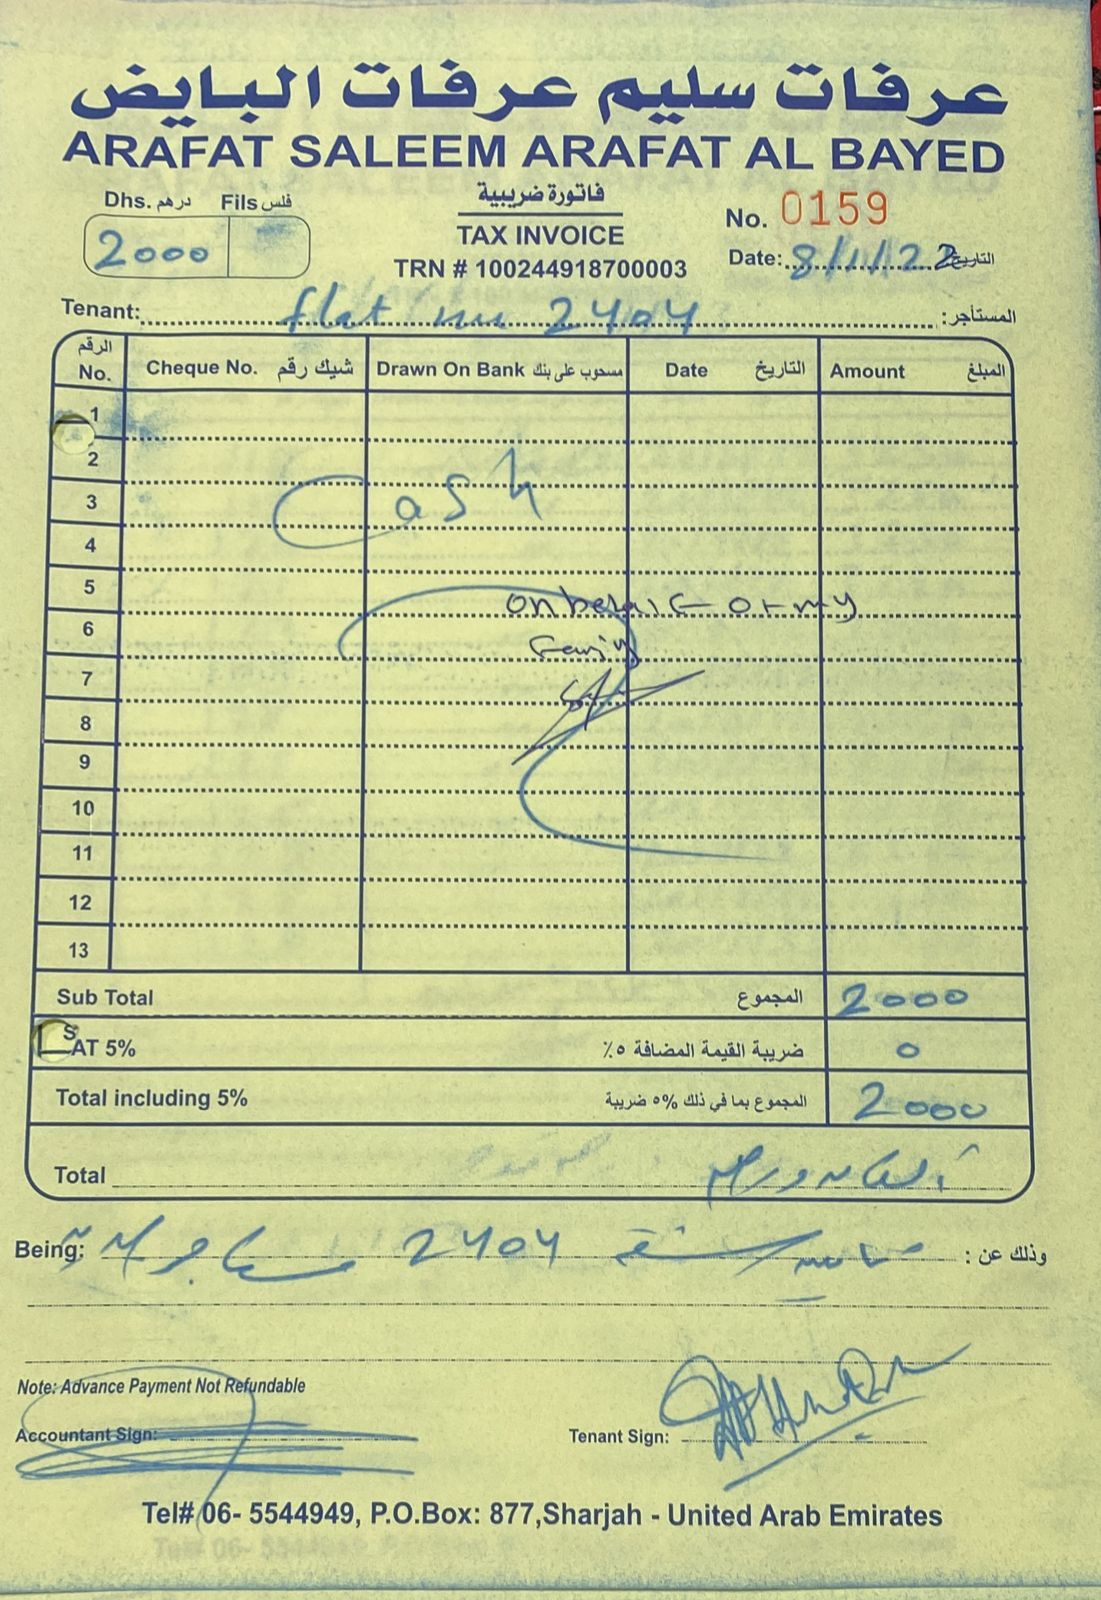 عرفات سليم عرفات البايض
ARAFAT SALEEM ARAFAT AL BAYED
Dhs. درهم Fils فلس
2000
فاتورة ضريبية
TAX INVOICE
TRN # 100244918700003
No. 0159
Date: 8/1/22 التاريخ
Tenant: flat no 2404 المستأجر:
الرقم No. Cheque No. شيك رقم Drawn On Bank مسحوب على بنك Date التاريخ Amount المبلغ
1
2
3
Cash
4
5
on behalf of my
6
7
8
9
10
11
12
13
Sub Total المجموع 2000
AT 5% ضريبة القيمة المضافة ٥٪ 0
Total including 5% المجموع بما في ذلك %٥ ضريبة 2000
Total
Being: 2404 وذلك عن :
Note: Advance Payment Not Refundable
Accountant Sign:
Tenant Sign:
Tel# 06- 5544949, P.O.Box: 877,Sharjah - United Arab Emirates